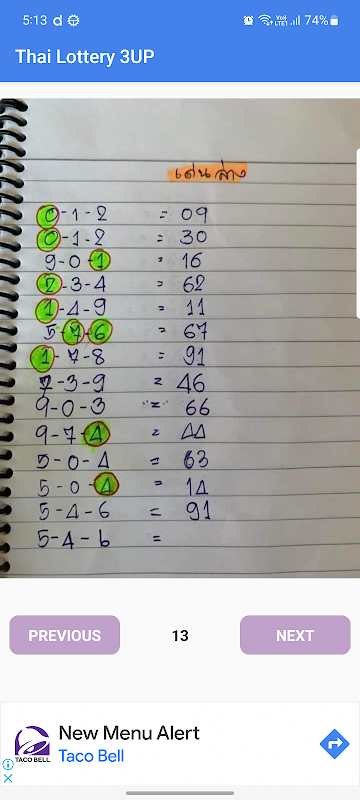 5:13 d VoD LTE1 74%
Thai Lottery 3UP
เด่นล่าง
0-1-2 = 09
0-1-2 = 30
9-0-1 = 16
2-3-4 = 62
1-4-9 = 11
5-7-6 = 67
1-7-8 = 91
2-3-9 = 46
9-0-3 = 66
9-7-4 = 44
5-0-4 = 63
5-0-4 = 14
5-4-6 = 91
5-4-6 =
PREVIOUS 13 NEXT
New Menu Alert
Taco Bell
TACO BELL